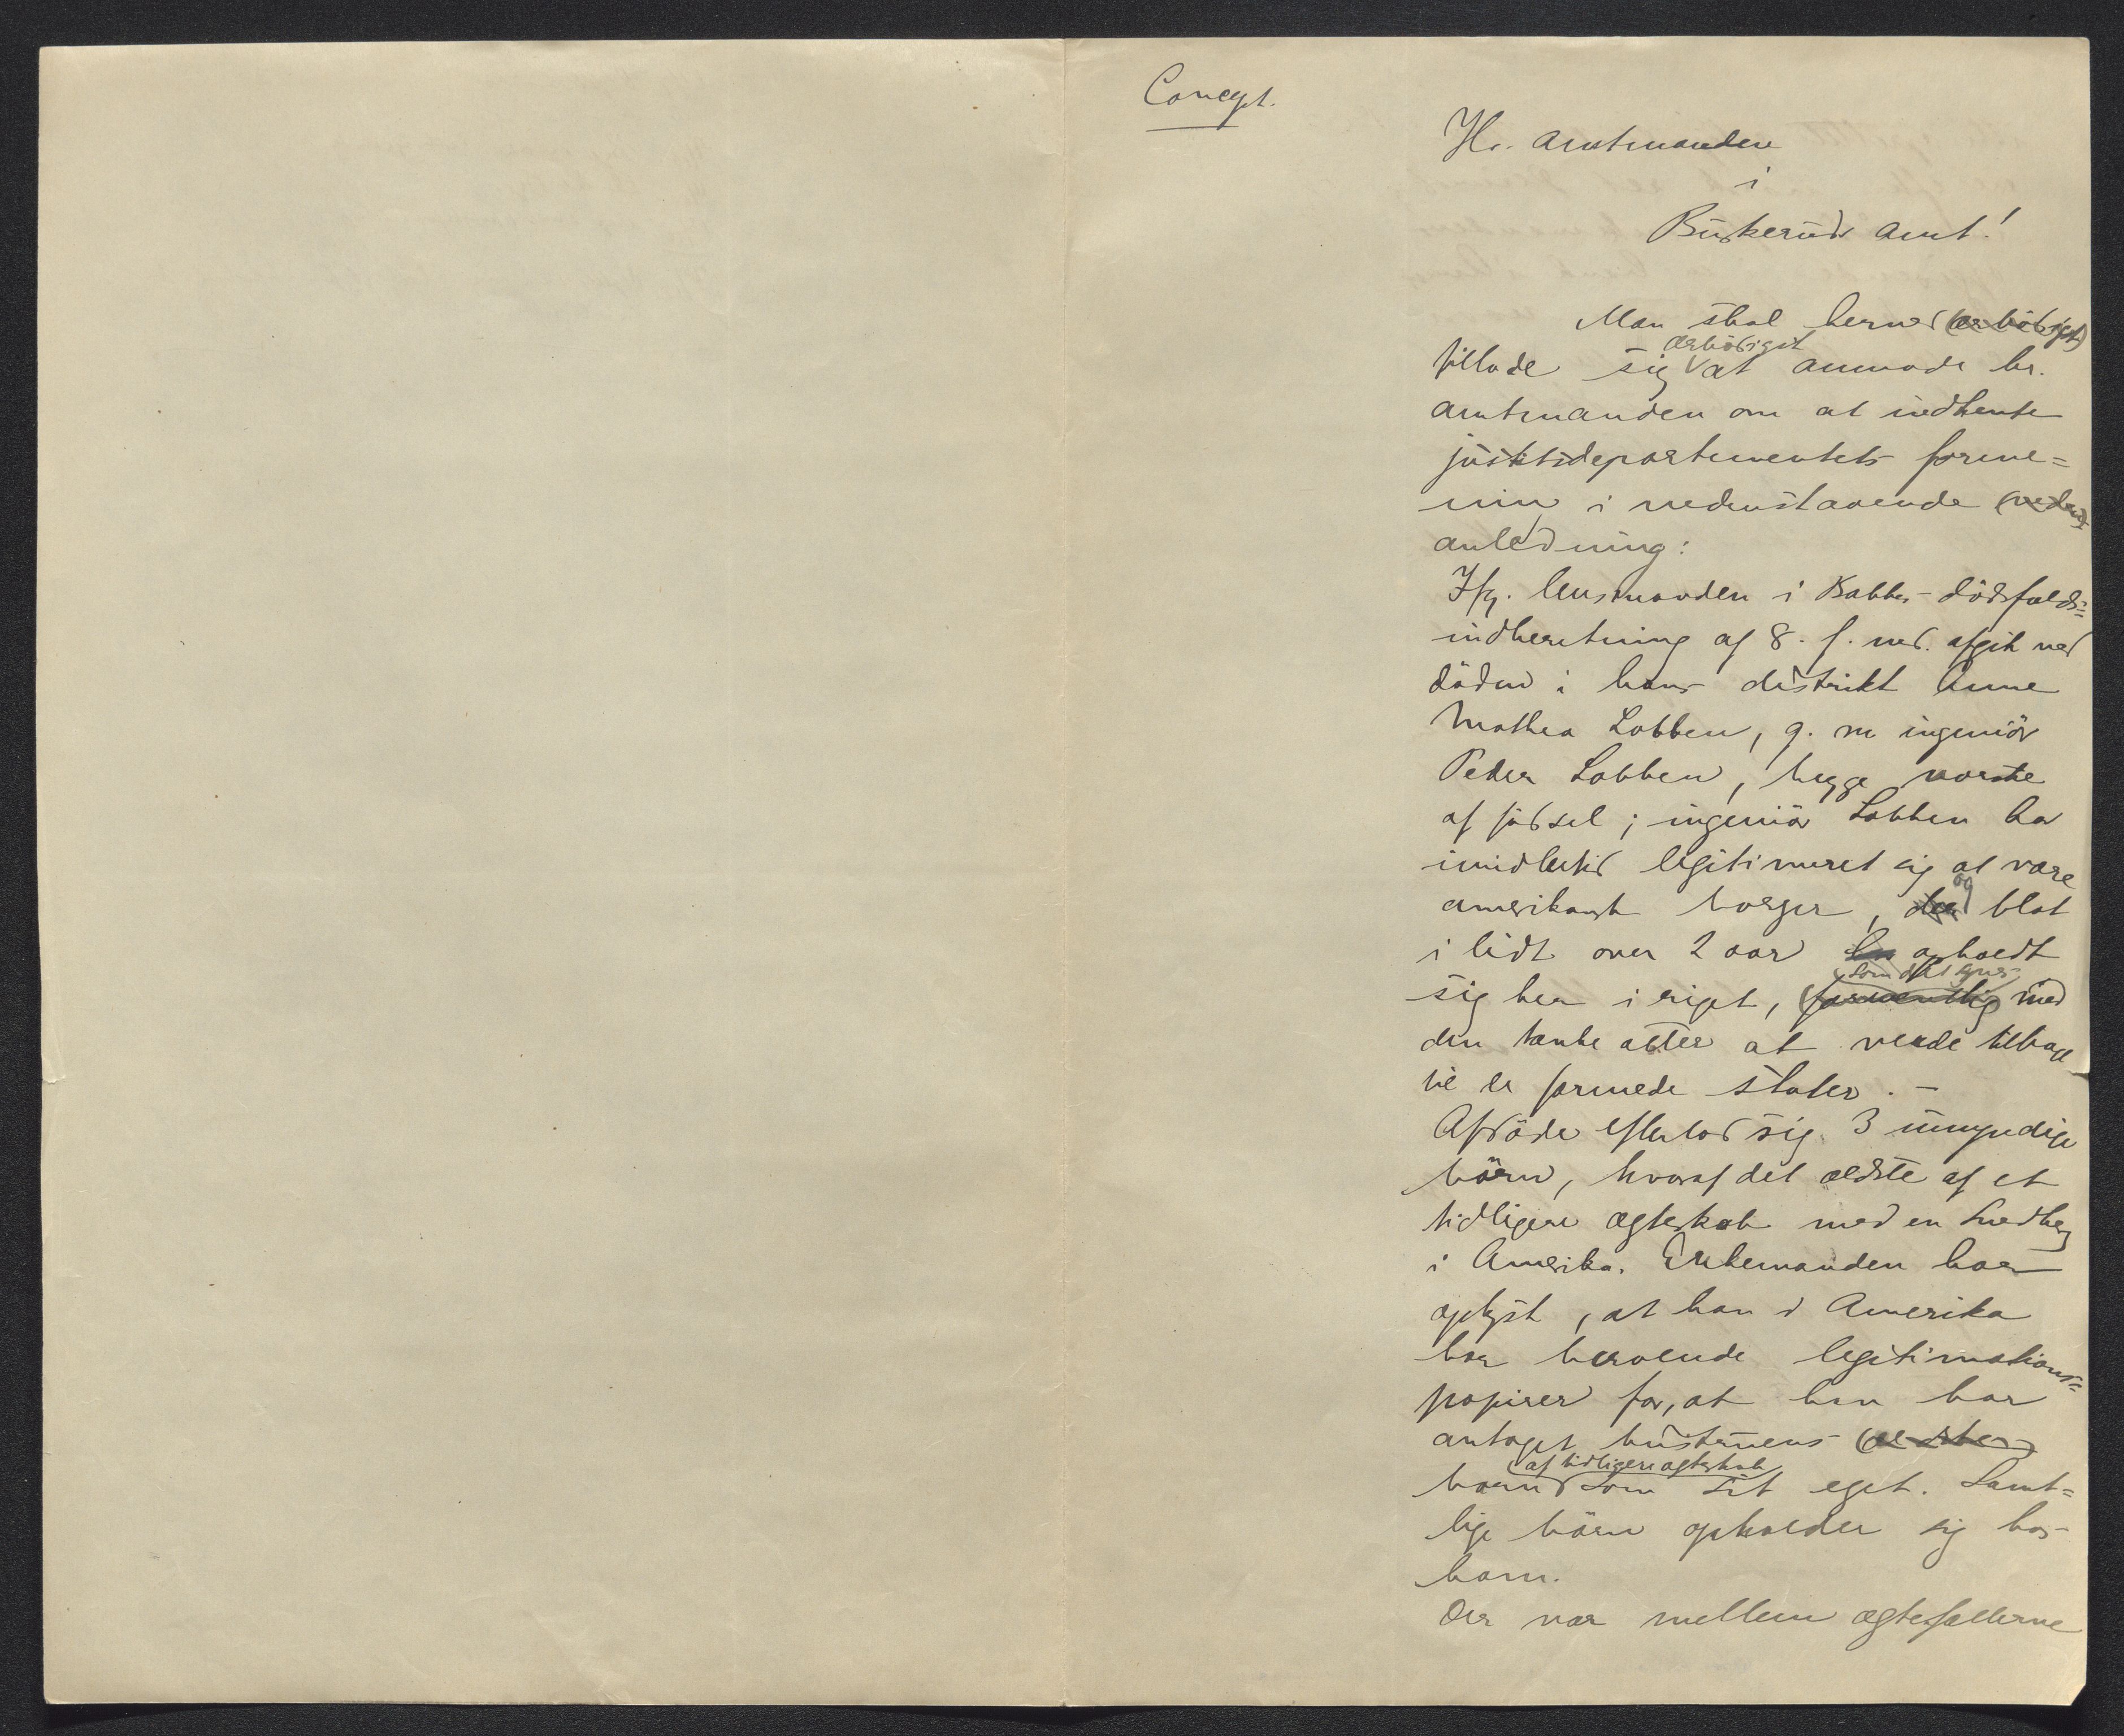 Concept.
Hr. amtmanden
i
Buskeruds amt!
Man skal herved (ærbödigst)
ærbödigst
tillade sig at anmode hr.
amtmanden om at indhente
justitsdepartementets forme=
ning i nedenstaaende
anledning:
Ifg. lensmanden i dödsfalds=
indberetning af 8. f. md. afgik ved
döden i hans distrikt Anne
Mathea Lobben, g. m ingeniör
Peder Lobben, begge norske
af födsel; ingeniör Lobben har
imidlertid legitimeret sig at være
og
amerikansk borger, der blot
i lidt over 2 aar har opholdt
som det synes
sig her i riget, (formentlig) med
den tanke atter at vende tilbage
til de forenede stater. –
Afdöde efterlod sig 3 umyndige
börn, hvoraf det ældste af et
tidligere ægteskab med en Lindberg
i Amerika. Enkemanden har
oplyst, at han i Amerika
har beroende legitimations=
papirer for, at han har
antaget hustruens (ældste)
af tidligere ægteskab
barn som sit eget. Samt=
lige börn opholder sig hos
ham.
Der var mellem ægtefællerne